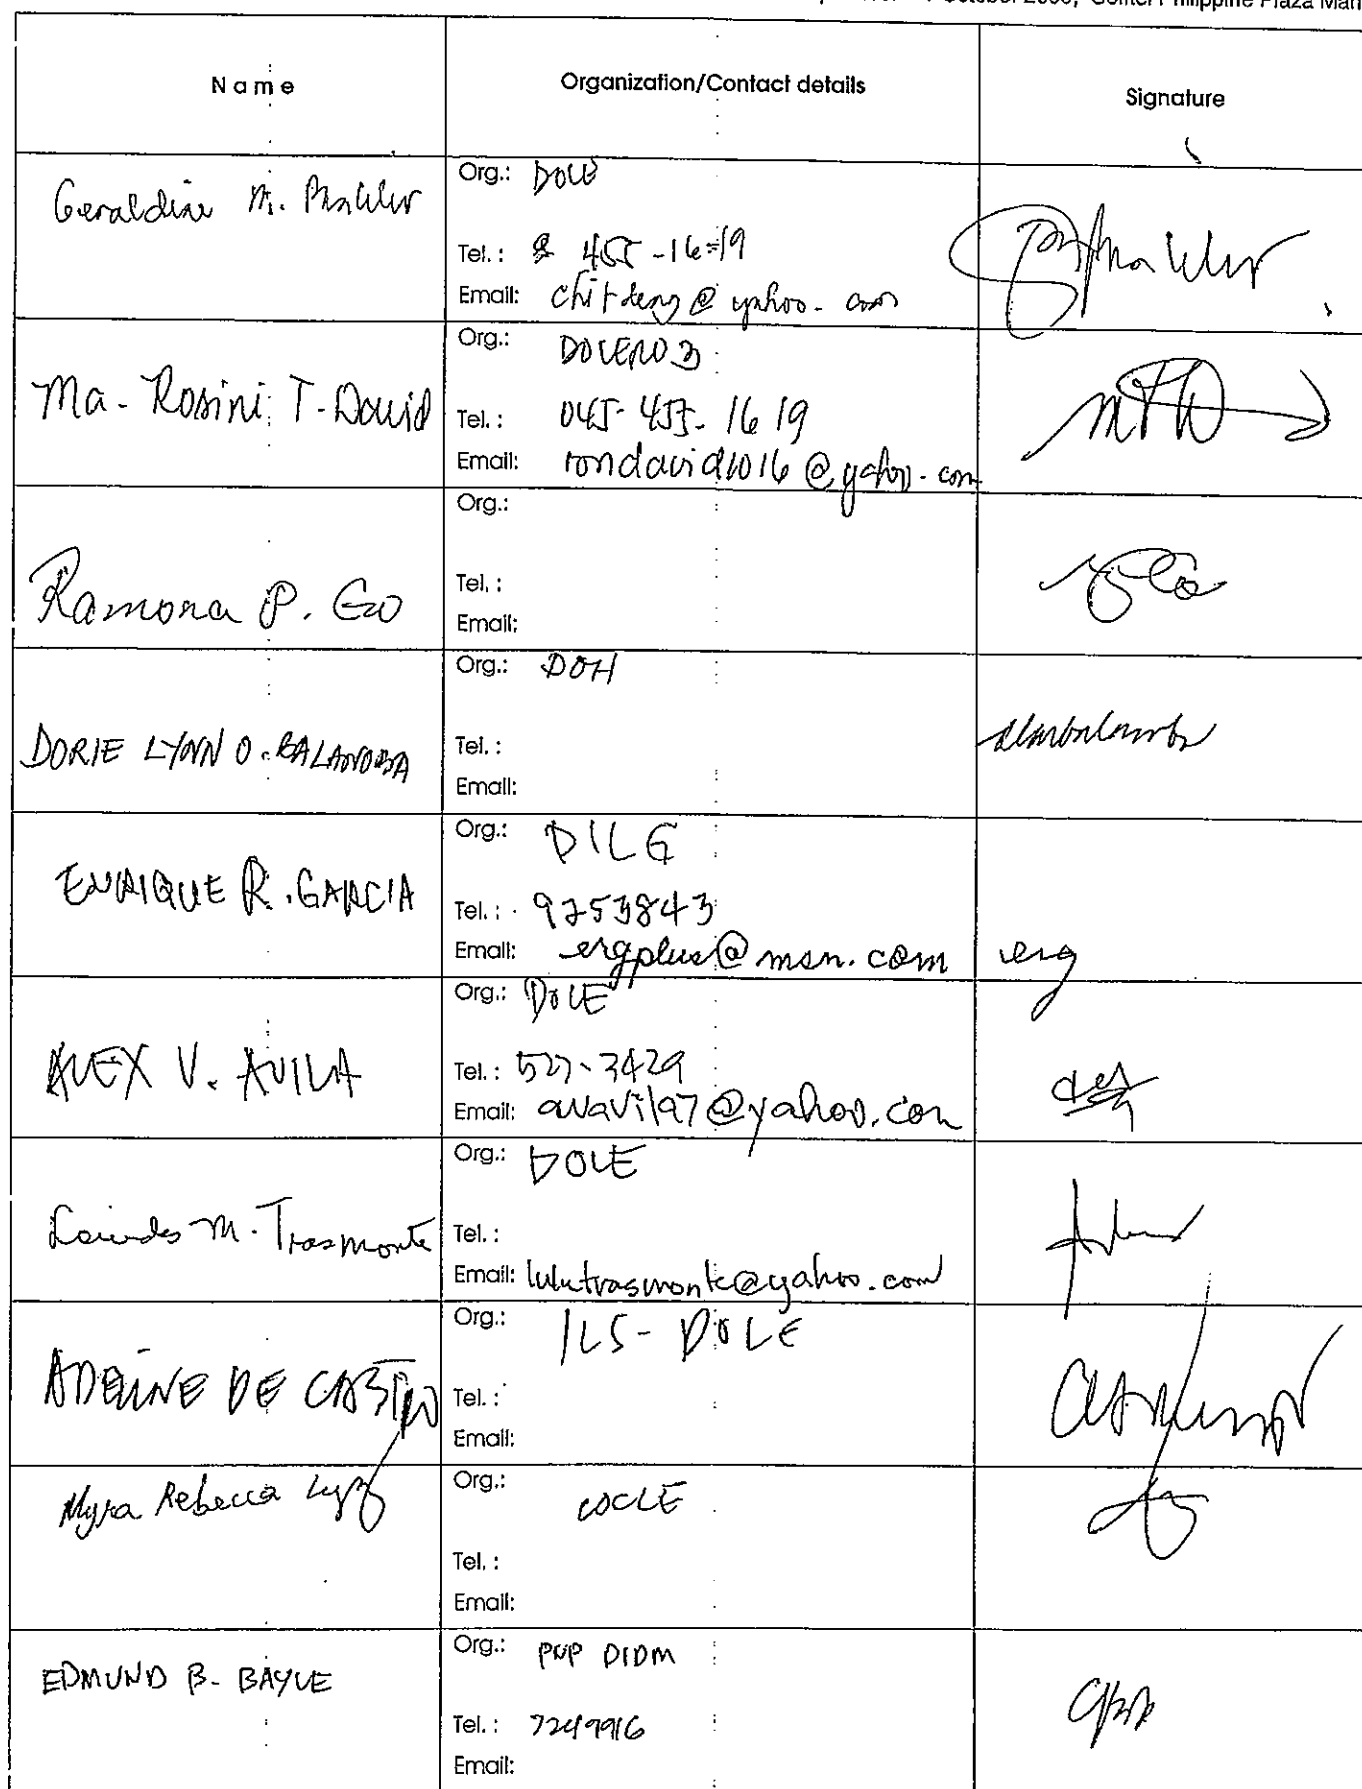 October 2006, Sofitel Philippine Plaza
Name
Organization/Contact details
Signature
Geraldine M.
Org.: DOLE
Tel.: 455-1619
Email: chitdeng@yahoo.com
Ma. Rosini T. David
Org.: DOLE RO 3
Tel.: 045-455-1619
Email: rondavid1016@yahoo.com
Ramona P. Go
Org.:
Tel.:
Email:
DORIE LYNN O. BALANOBA
Org.: DOH
Tel.:
Email:
ENRIQUE R. GARCIA
Org.: DILG
Tel.: 9253843
Email: ergplus@msn.com
erg
ALEX V. AVILA
Org.: DOLE
Tel.: 527-3429
Email: avavila7@yahoo.com
Lourdes M. Trasmonte
Org.: DOLE
Tel.:
Email: lulutrasmonte@yahoo.com
ADELINE DE CASTRO
Org.: ILS-DOLE
Tel.:
Email:
Myra Rebecca
Org.:
Tel.:
Email:
EDMUND B. BAYLE
Org.: PNP DIDM
Tel.: 7249916
Email: